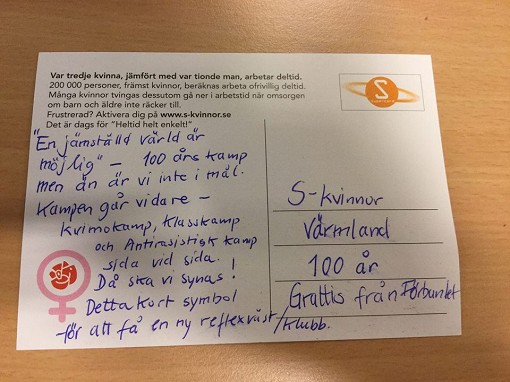 Var tredje kvinna, jämfört med var tionde man, arbetar deltid.
200 000 personer, främst kvinnor, beräknas arbeta ofrivillig deltid.
Många kvinnor tvingas dessutom gå ner i arbetstid när omsorgen
om barn och äldre inte räcker till.
Frustrerad? Aktivera dig på www.s-kvinnor.se
Det är dags för "Heltid helt enkelt!"
"En jämställd värld är
möjlig" – 100 års kamp
men än är vi inte i mål.
Kampen går vidare –
kvinnokamp, klasskamp
och Antirasistisk kamp
sida vid sida.
Då ska vi synas!
Detta kort symbol
för att få en ny reflexväst/klubb.
S
S-kvinnor
Värmland
100 år
Grattis från Förbundet